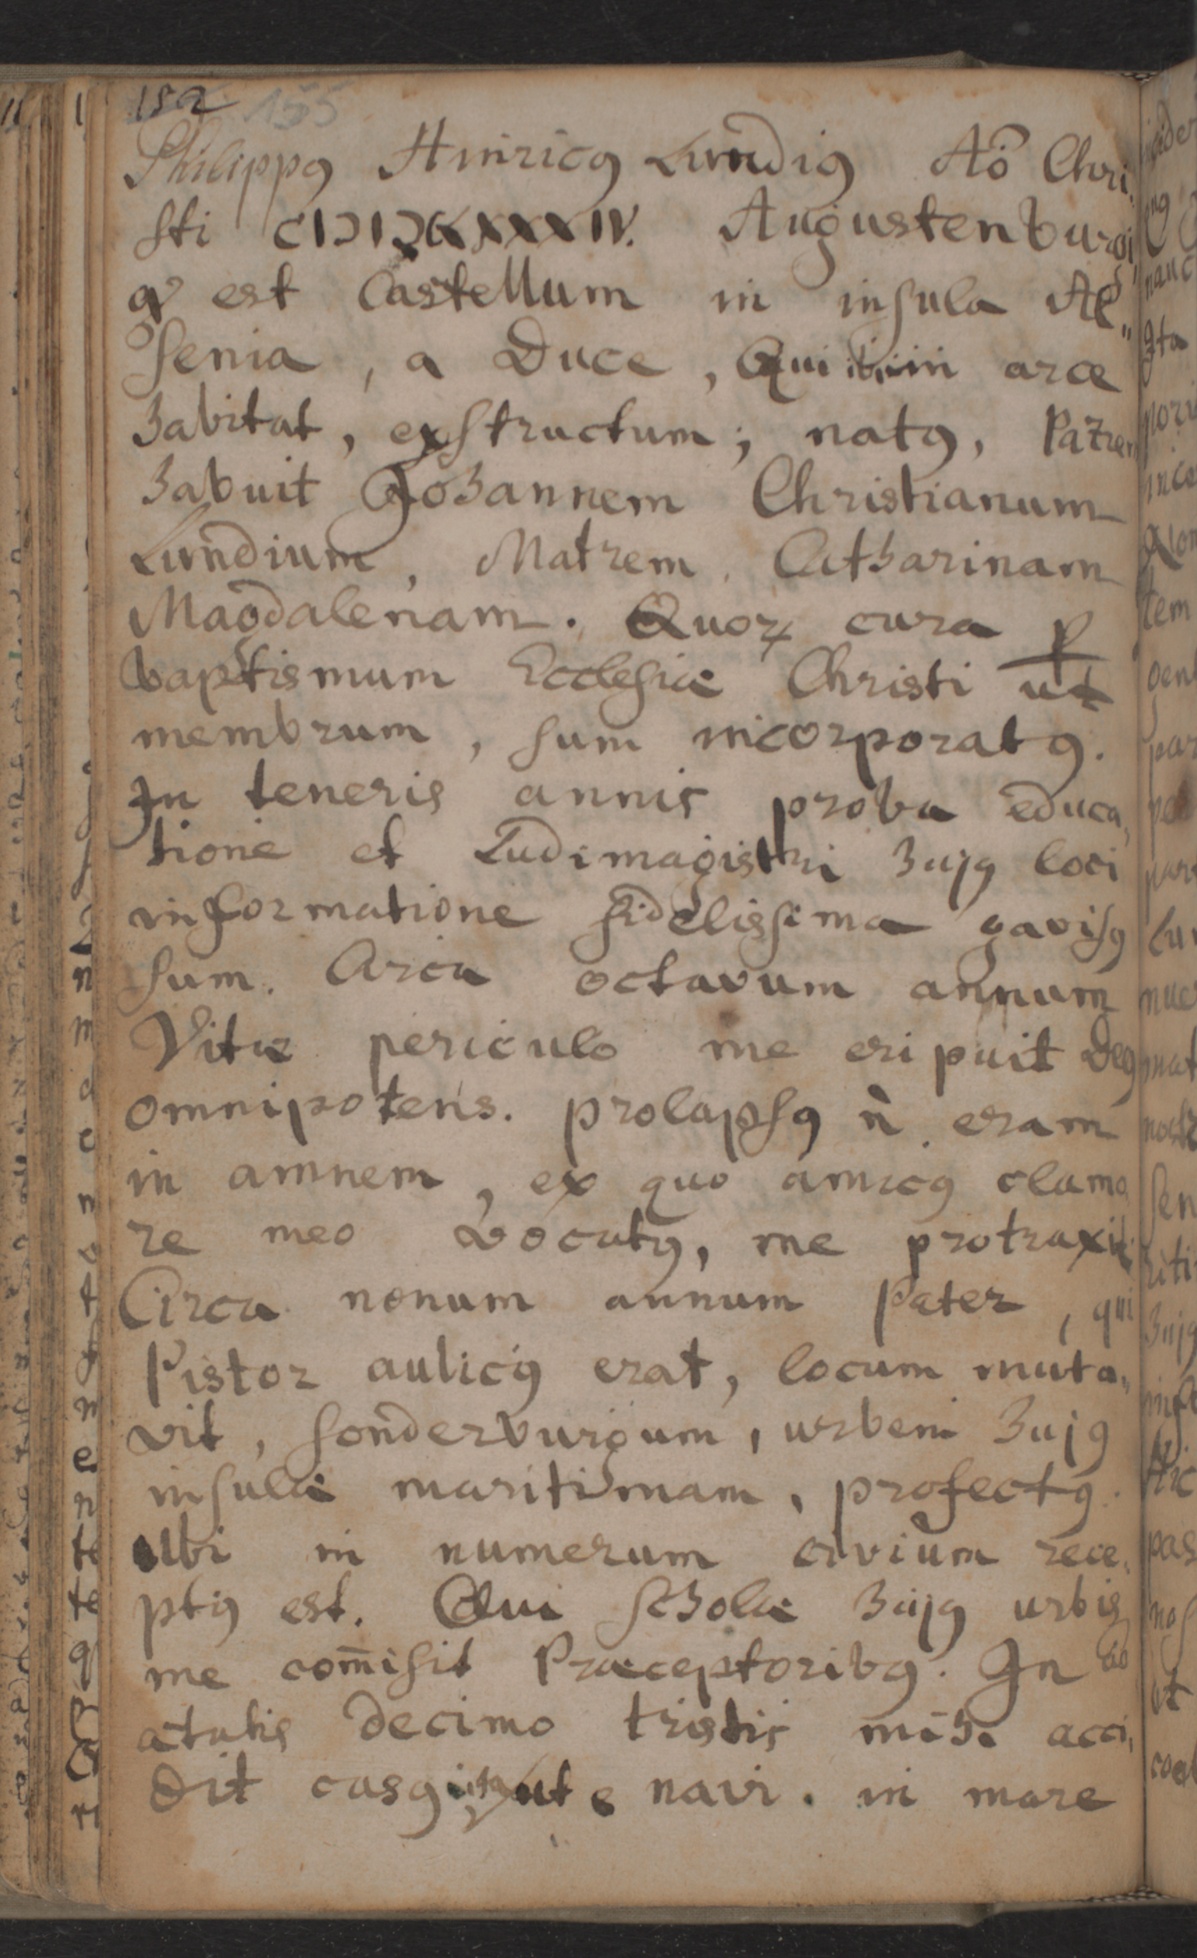 152 155
Philippꝰ Hinricꝰ Lundiꝰ Aō Chri,
sti CIƆIƆCXXXIV. Augustenburgi,
qꝫ est Castellum in insula Al„
senia, a Duce, Qui in arce
habitat, exstructum; natꝰ, Patrem
habuit Johannem Christianum
Lundium, Matrem, Catharinam
Magdalenam. Quoꝝ cura ꝑ
baptismum Ecclesiæ Christi ut
membrum, sum incorporatꝰ.
In teneris annis proba educa,
tione et Ludimagistri hujꝰ loci
informatione fidelissima gavisꝰ
sum. Circa octavum annum
Vitæ periculo me eripuit Deꝰ
omnipotens. prolapsꝰ n̄ eram
in amnem, ex quo amicꝰ clamo
re meo vocatꝰ, me protraxit.
Circa nonum annum Pater, qui
Pistor aulicꝰ erat, locum muta„
vit, Sonderburgum, urbem hujꝰ
insulæ maritimam, profectꝰ.
Ubi in numerum civium rece,
ptꝰ est. Qui scholæ hujꝰ urbis
me com̄isit Præceptoribꝰ. In ao
ætatis decimo tristis mihi acci,
dit casꝰ ut e navi in mare